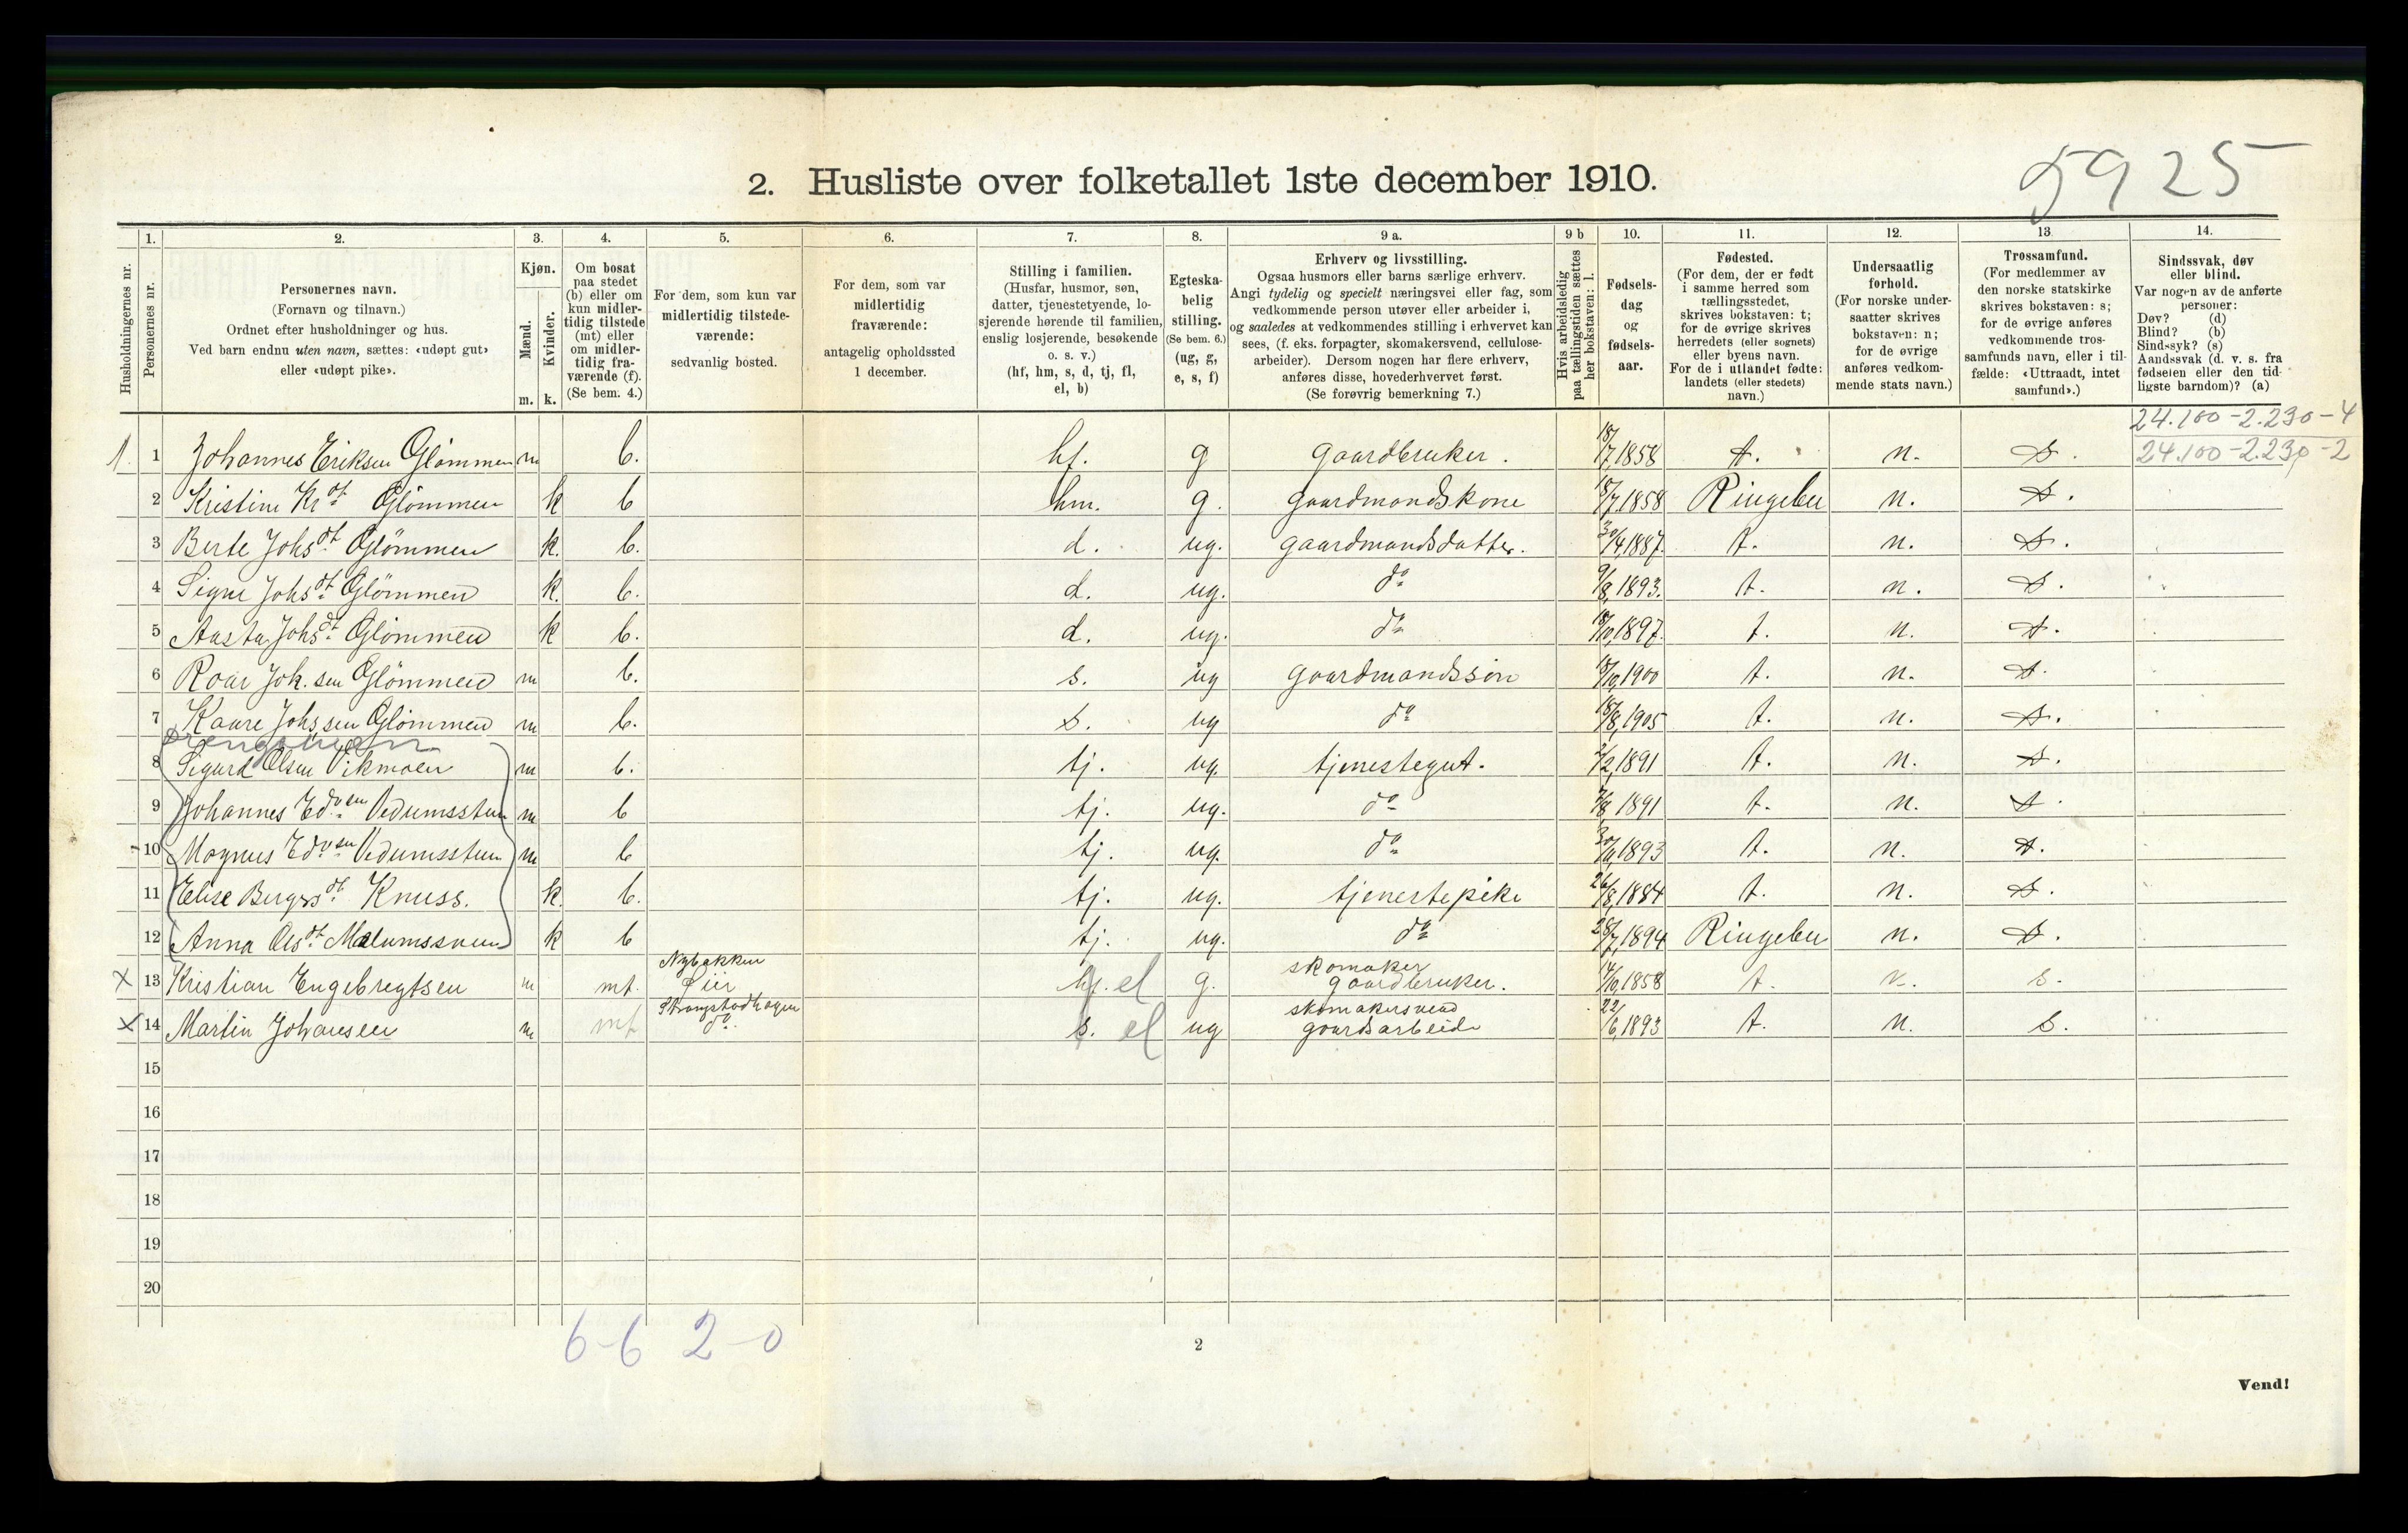 5925
2. Husliste over folketallet 1ste december 1910.
Husholdningernes nr.
1. Personernes nr.
2. Personernes navn.
(Fornavn og tilnavn.)
Ordnet efter husholdninger og hus.
Ved barn endnu uten navn, sættes: «udøpt gut»
eller «udøpt pike».
3. Kjøn.
Mænd. m.
Kvinder. k.
4. Om bosat
paa stedet
(b) eller om
kun midler-
tidig tilstede
(mt) eller
om midler-
tidig fra-
værende (f).
(Se bem. 4.)
5. For dem, som kun var
midlertidig tilstede-
værende:
sedvanlig bosted.
6. For dem, som var
midlertidig
fraværende:
antagelig opholdssted
1 december.
7. Stilling i familien.
(Husfar, husmor, søn,
datter, tjenestetyende, lo-
sjerende hørende til familien,
enslig losjerende, besøkende
o. s. v.)
(hf, hm, s, d, tj, fl,
el, b)
8. Egteska-
belig
stilling.
(Se bem. 6.)
(ug, g,
e, s, f)
9 a. Erhverv og livsstilling.
Ogsaa husmors eller barns særlige erhverv.
Angi tydelig og specielt næringsvei eller fag, som
vedkommende person utøver eller arbeider i,
og saaledes at vedkommendes stilling i erhvervet kan
sees, (f. eks. forpagter, skomakersvend, cellulose-
arbeider). Dersom nogen har flere erhverv,
anføres disse, hovederhvervet først.
(Se forøvrig bemerkning 7.)
9 b Hvis arbeidsledig
paa tællingstiden sættes
her bokstaven: l.
10. Fødsels-
dag
og
fødsels-
aar.
11. Fødested.
(For dem, der er født
i samme herred som
tællingsstedet,
skrives bokstaven: t;
for de øvrige skrives
herredets (eller sognets)
eller byens navn.
For de i utlandet fødte:
landets (eller stedets)
navn.)
12. Undersaatlig
forhold.
(For norske under-
saatter skrives
bokstaven: n;
for de øvrige
anføres vedkom-
mende stats navn.)
13. Trossamfund.
(For medlemmer av
den norske statskirke
skrives bokstaven: s;
for de øvrige anføres
vedkommende tros-
samfunds navn, eller i til-
fælde: «Uttraadt, intet
samfund».)
14. Sindssvak, døv
eller blind.
Var nogen av de anførte
personer:
Døv? (d)
Blind? (b)
Sindssyk? (s)
Aandssvak (d. v. s. fra
fødselen eller den tid-
ligste barndom)? (a)
24.100-2.230-4
1. 1 Johannes Eriksen Glømmen m b. hf. g gaardbruker. 18/7 1858 t. n. s. 24.100-2.230-2
2 Kristine Kr dt Glømmen k b hm. g. gaardmandskone 18/7 1858 Ringebu n. s.
3 Berte Johs dt Glømmen k. b. d. ug. gaardmandsdatter. 30/4 1887. t. n. s.
4 Signe Johs dt Glømmen k. b. d. ug. do 9/8 1893. t. n. s.
5 Aasta Johs dt Glømmen k b. d. ug. do 18/10 1897. t. n. s.
6 Roar Joh. sen Glømmen m b. s. ug gaardmandssøn 18/10 1900 t. n. s.
7 Kaare Johs sen Glømmen m b. s. ug do 18/8 1905 t. n. s.
8 Sigurd Olsen Vikmoen m b. tj. ug. tjenestegut. 2/2 1891 t. n. s.
9 Johannes Edv sen Vedumsstuen m b tj. ug. do 7/8 1891 t. n. s.
10 Magnus Edv sen Vedumsstuen m b tj. ug. do 30/11 1893 t. n. s.
11 Elise Bergs dt Knuss. k. b. tj. ug. tjenestepike 26/8 1884 t. n. s.
12 Anna Ols dt Mælumssveen k b tj. ug. do 28/7 1894 Ringebu n. s.
Nybakken skomaker
x 13 Kristian Engebregtsen m mt. Øier hf. el g. gaardbruker. 14/10 1858 t. n. s.
skomakersvend
x 14 Martin Johansen m mt do s. el ug gaardsarbeide 22/6 1893 t. n. s.
15
16
17
18
19
20
6-6 2-0
2
Vend!